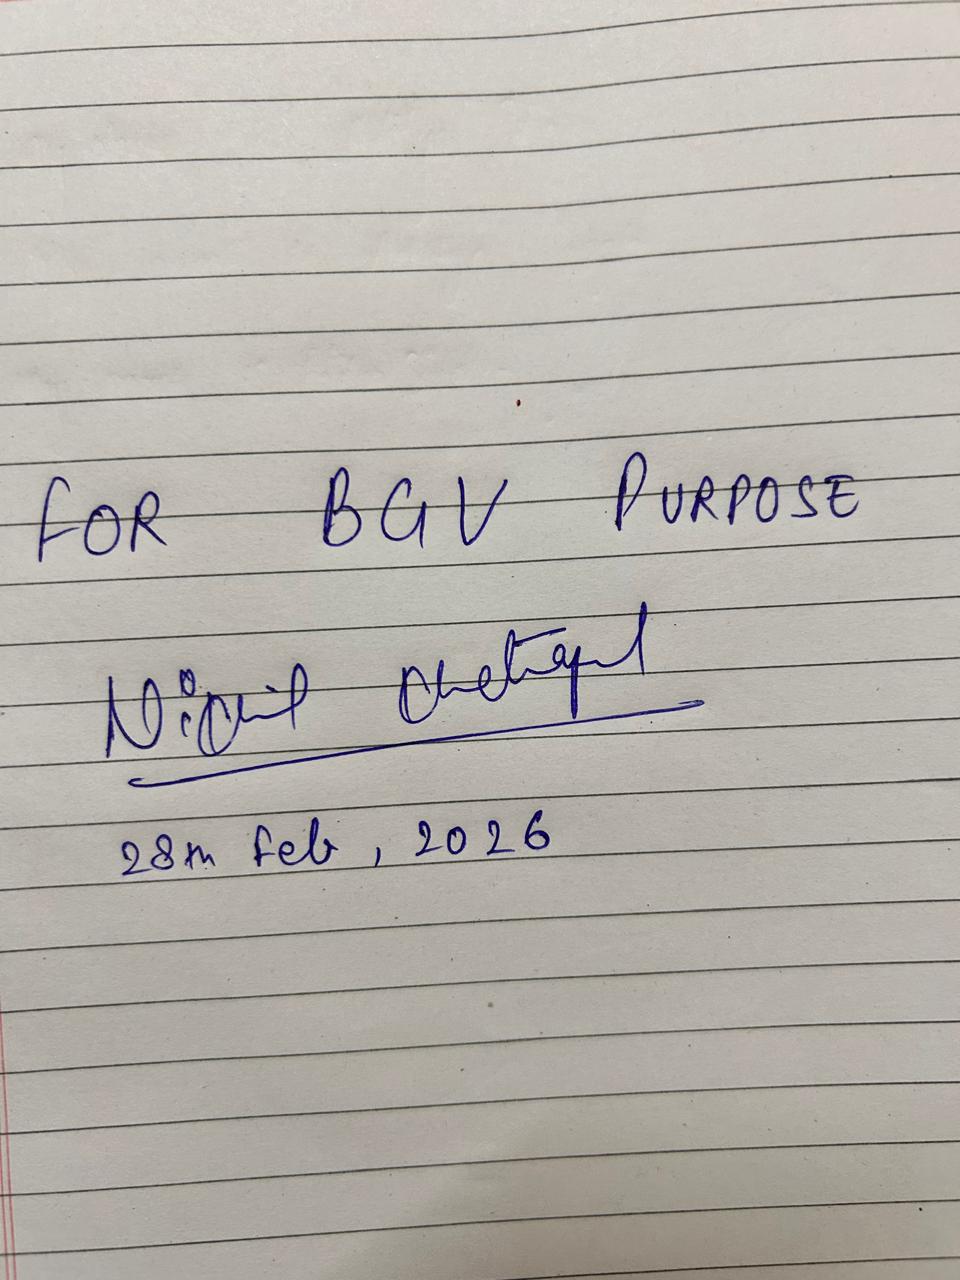 FOR BGV PURPOSE
28th Feb, 2026